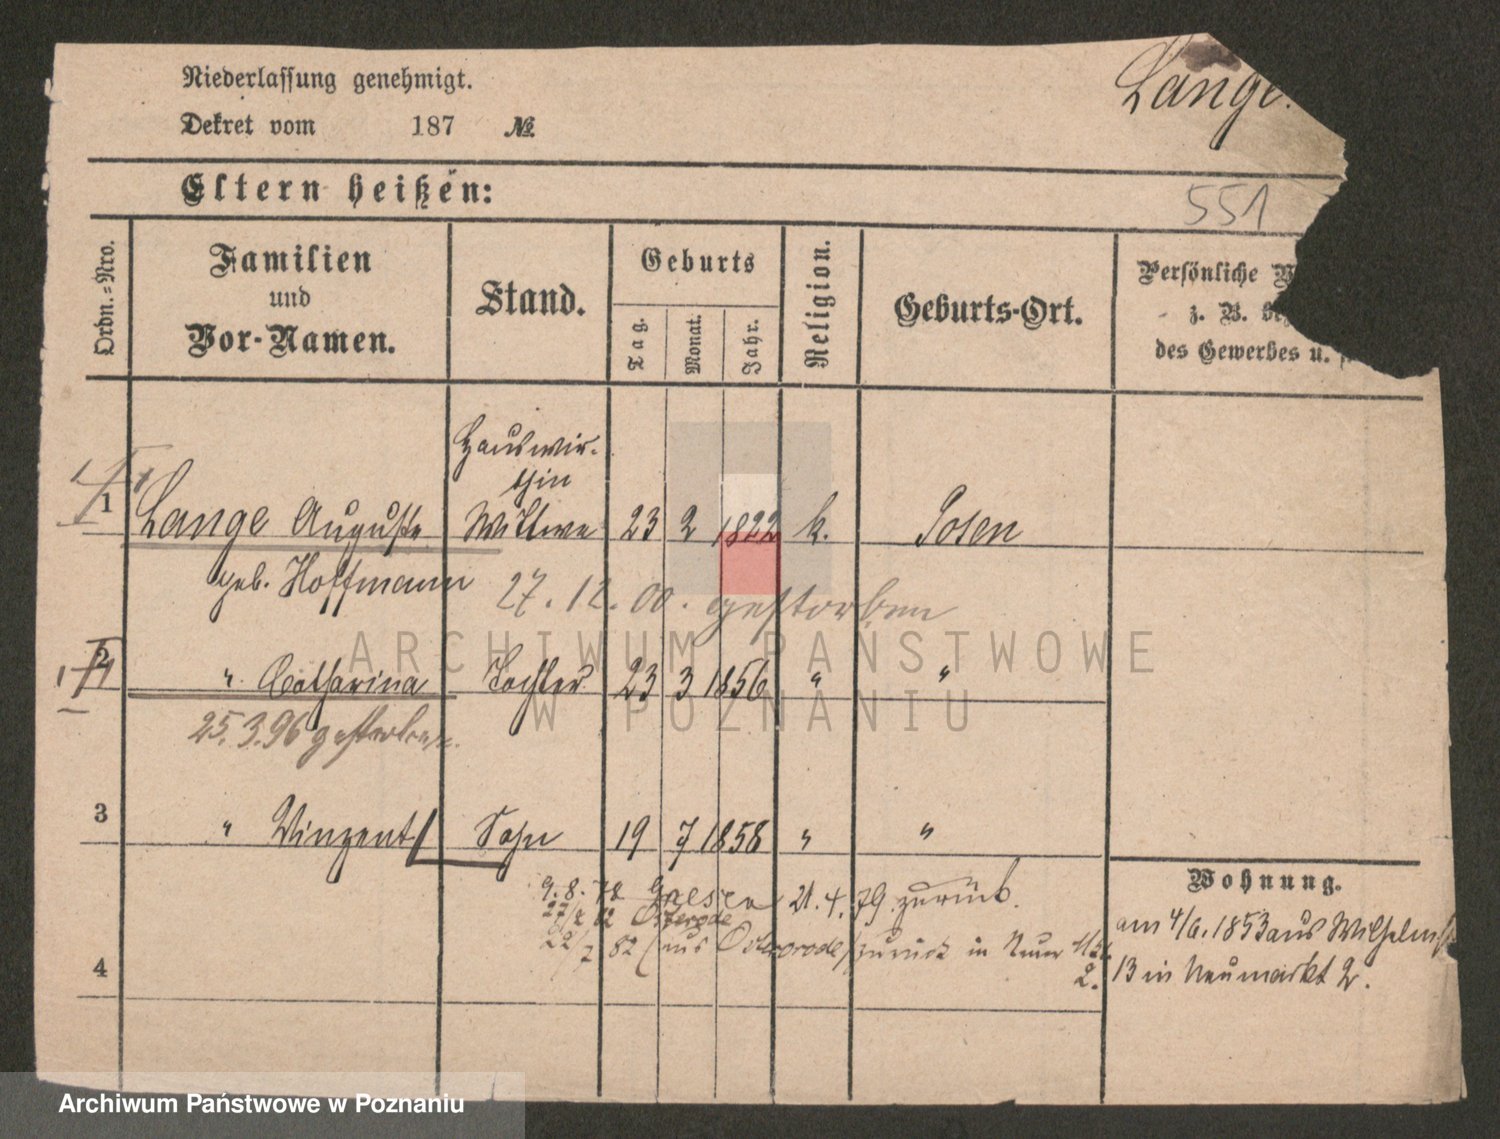 Lange.
Niederlassung genehmigt.
Dekret vom 187 №.
Eltern heißen:
551
Ordn.-Nro.
Familien
und
Vor-Namen.
Stand.
Geburts
Tag.
Monat.
Jahr.
Religion.
Geburts-Ort.
Persönliche
z. B.
des Gewerbes u.
Hauswir-
thin
1 Lange Auguste Wittwe 23 2 1822 k. Posen
geb. Hoffmann
27.12.00. gestorben
2 " Catharina Tochter 23 3 1856 " "
25.3.96 gestorben.
3 " Vinzent Sohn 19 7 1858 " "
9.8.78 Gnesen 21.4.79 zurück.
27/2 82 Osterode
22/7 82 (aus Osterode) zurück in Neuer
2.
4
Wohnung.
am 4/6. 1853 aus Wilhelmst
13 in Neumarkt 2.
ARCHIWUM PAŃSTWOWE
W POZNANIU
Archiwum Państwowe w Poznaniu